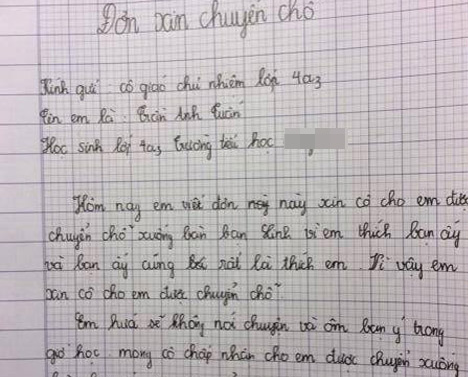 Đơn xin chuyển chỗ
Kính gửi: cô giáo chủ nhiệm lớp 4a3
Tên em là: Trần Anh Tuấn
Học sinh lớp 4a3 trường tiểu học
Hôm nay em viết đơn này xin cô cho em được
chuyển chỗ xuống bàn bạn Linh vì em thích bạn ấy
và bạn ấy cũng rất là thích em. Vì vậy em
xin cô cho em được chuyển chỗ.
Em hứa sẽ không nói chuyện và ôm bạn ý trong
giờ học. mong cô chấp nhân cho em được chuyển xuống